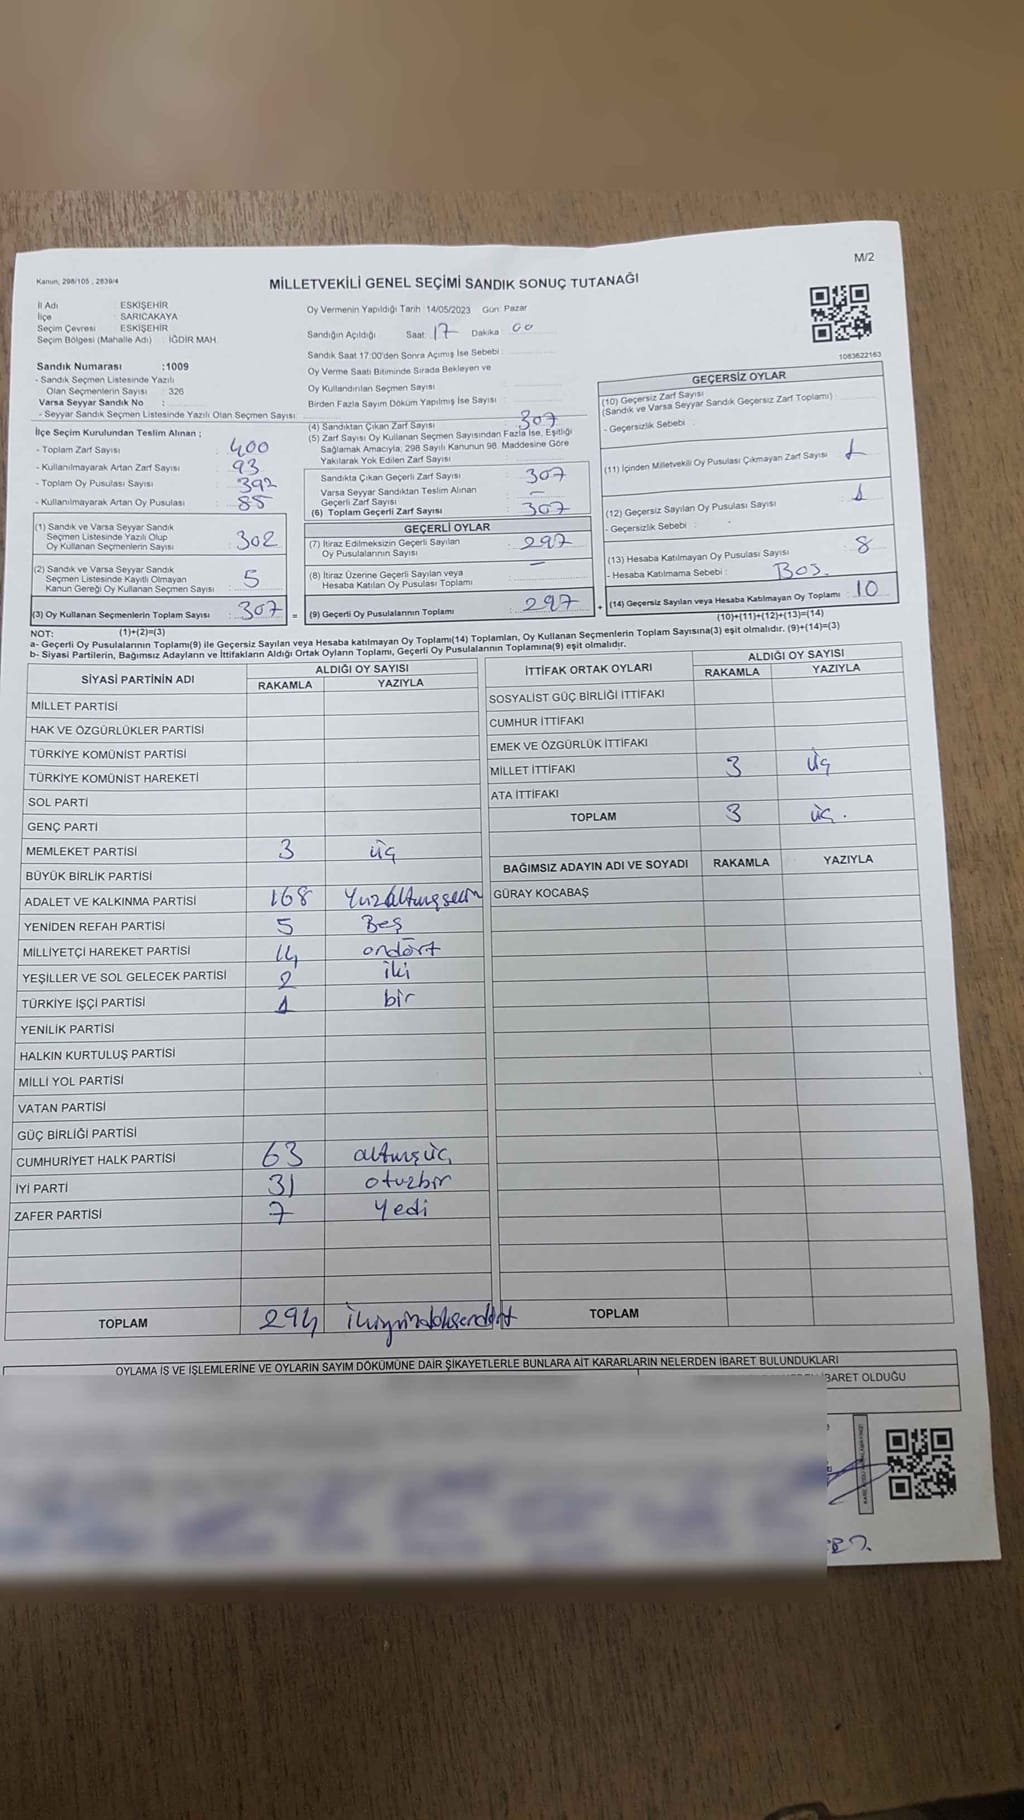 M/2
Kanun; 298/105 , 2839/4
MİLLETVEKİLİ GENEL SEÇİMİ SANDIK SONUÇ TUTANAĞI
İl Adı : ESKİŞEHİR
İlçe : SARICAKAYA
Seçim Çevresi : ESKİŞEHİR
Seçim Bölgesi (Mahalle Adı) : İĞDİR MAH.
Sandık Numarası :1009
- Sandık Seçmen Listesinde Yazılı
Olan Seçmenlerin Sayısı : 326
Varsa Seyyar Sandık No :
- Seyyar Sandık Seçmen Listesinde Yazılı Olan Seçmen Sayısı:
Oy Vermenin Yapıldığı Tarih :14/05/2023 Gün: Pazar
Sandığın Açıldığı Saat: 17 Dakika: 00
Sandık Saat 17:00'den Sonra Açımış İse Sebebi :
Oy Verme Saati Bitiminde Sırada Bekleyen ve
Oy Kullandırılan Seçmen Sayısı :
Birden Fazla Sayım Döküm Yapılmış İse Sayısı :
1083622163
İlçe Seçim Kurulundan Teslim Alınan ;
- Toplam Zarf Sayısı : 400
- Kullanılmayarak Artan Zarf Sayısı : 93
- Toplam Oy Pusulası Sayısı : 392
- Kullanılmayarak Artan Oy Pusulası : 85
(1) Sandık ve Varsa Seyyar Sandık
Seçmen Listesinde Yazılı Olup
Oy Kullanan Seçmenlerin Sayısı : 302
(2) Sandık ve Varsa Seyyar Sandık
Seçmen Listesinde Kayıtlı Olmayan
Kanun Gereği Oy Kullanan Seçmen Sayısı : 5
(3) Oy Kullanan Seçmenlerin Toplam Sayısı : 307 =
(1)+(2)=(3)
(4) Sandıktan Çıkan Zarf Sayısı : 307
(5) Zarf Sayısı Oy Kullanan Seçmen Sayısından Fazla İse, Eşitliği
Sağlamak Amacıyla, 298 Sayılı Kanunun 98. Maddesine Göre
Yakılarak Yok Edilen Zarf Sayısı :
Sandıkta Çıkan Geçerli Zarf Sayısı : 307
Varsa Seyyar Sandıktan Teslim Alınan
Geçerli Zarf Sayısı : –
(6) Toplam Geçerli Zarf Sayısı : 307
GEÇERLİ OYLAR
(7) İtiraz Edilmeksizin Geçerli Sayılan
Oy Pusulalarının Sayısı : 297
(8) İtiraz Üzerine Geçerli Sayılan veya
Hesaba Katılan Oy Pusulası Toplamı : –
(9) Geçerli Oy Pusulalarının Toplamı : 297 +
GEÇERSİZ OYLAR
(10) Geçersiz Zarf Sayısı
(Sandık ve Varsa Seyyar Sandık Geçersiz Zarf Toplamı) :
- Geçersizlik Sebebi :
(11) İçinden Milletvekili Oy Pusulası Çıkmayan Zarf Sayısı : 1
(12) Geçersiz Sayılan Oy Pusulası Sayısı : 1
- Geçersizlik Sebebi :
(13) Hesaba Katılmayan Oy Pusulası Sayısı : 8
- Hesaba Katılmama Sebebi : Boş.
(14) Geçersiz Sayılan veya Hesaba Katılmayan Oy Toplamı : 10
(10)+(11)+(12)+(13)=(14)
NOT:
a- Geçerli Oy Pusulalarının Toplamı(9) ile Geçersiz Sayılan veya Hesaba katılmayan Oy Toplamı(14) Toplamları, Oy Kullanan Seçmenlerin Toplam Sayısına(3) eşit olmalıdır. (9)+(14)=(3)
b- Siyasi Partilerin, Bağımsız Adayların ve İttifakların Aldığı Ortak Oyların Toplamı, Geçerli Oy Pusulalarının Toplamına(9) eşit olmalıdır.
SİYASİ PARTİNİN ADI ALDIĞI OY SAYISI
RAKAMLA YAZIYLA
MİLLET PARTİSİ
HAK VE ÖZGÜRLÜKLER PARTİSİ
TÜRKİYE KOMÜNİST PARTİSİ
TÜRKİYE KOMÜNİST HAREKETİ
SOL PARTİ
GENÇ PARTİ
MEMLEKET PARTİSİ 3 üç
BÜYÜK BİRLİK PARTİSİ
ADALET VE KALKINMA PARTİSİ 168 Yüzaltmışsekiz
YENİDEN REFAH PARTİSİ 5 Beş
MİLLİYETÇİ HAREKET PARTİSİ 14 ondört
YEŞİLLER VE SOL GELECEK PARTİSİ 2 iki
TÜRKİYE İŞÇİ PARTİSİ 1 bir
YENİLİK PARTİSİ
HALKIN KURTULUŞ PARTİSİ
MİLLİ YOL PARTİSİ
VATAN PARTİSİ
GÜÇ BİRLİĞİ PARTİSİ
CUMHURİYET HALK PARTİSİ 63 altmışüç
İYİ PARTİ 31 otuzbir
ZAFER PARTİSİ 7 Yedi
TOPLAM 294 ikiyüzdoksandört
İTTİFAK ORTAK OYLARI ALDIĞI OY SAYISI
RAKAMLA YAZIYLA
SOSYALİST GÜÇ BİRLİĞİ İTTİFAKI
CUMHUR İTTİFAKI
EMEK VE ÖZGÜRLÜK İTTİFAKI
MİLLET İTTİFAKI 3 üç
ATA İTTİFAKI
TOPLAM 3 üç.
BAĞIMSIZ ADAYIN ADI VE SOYADI RAKAMLA YAZIYLA
GÜRAY KOCABAŞ
TOPLAM
OYLAMA İŞ VE İŞLEMLERİNE VE OYLARIN SAYIM DÖKÜMÜNE DAİR ŞİKAYETLERLE BUNLARA AİT KARARLARIN NELERDEN İBARET BULUNDUKLARI
İBARET OLDUĞU